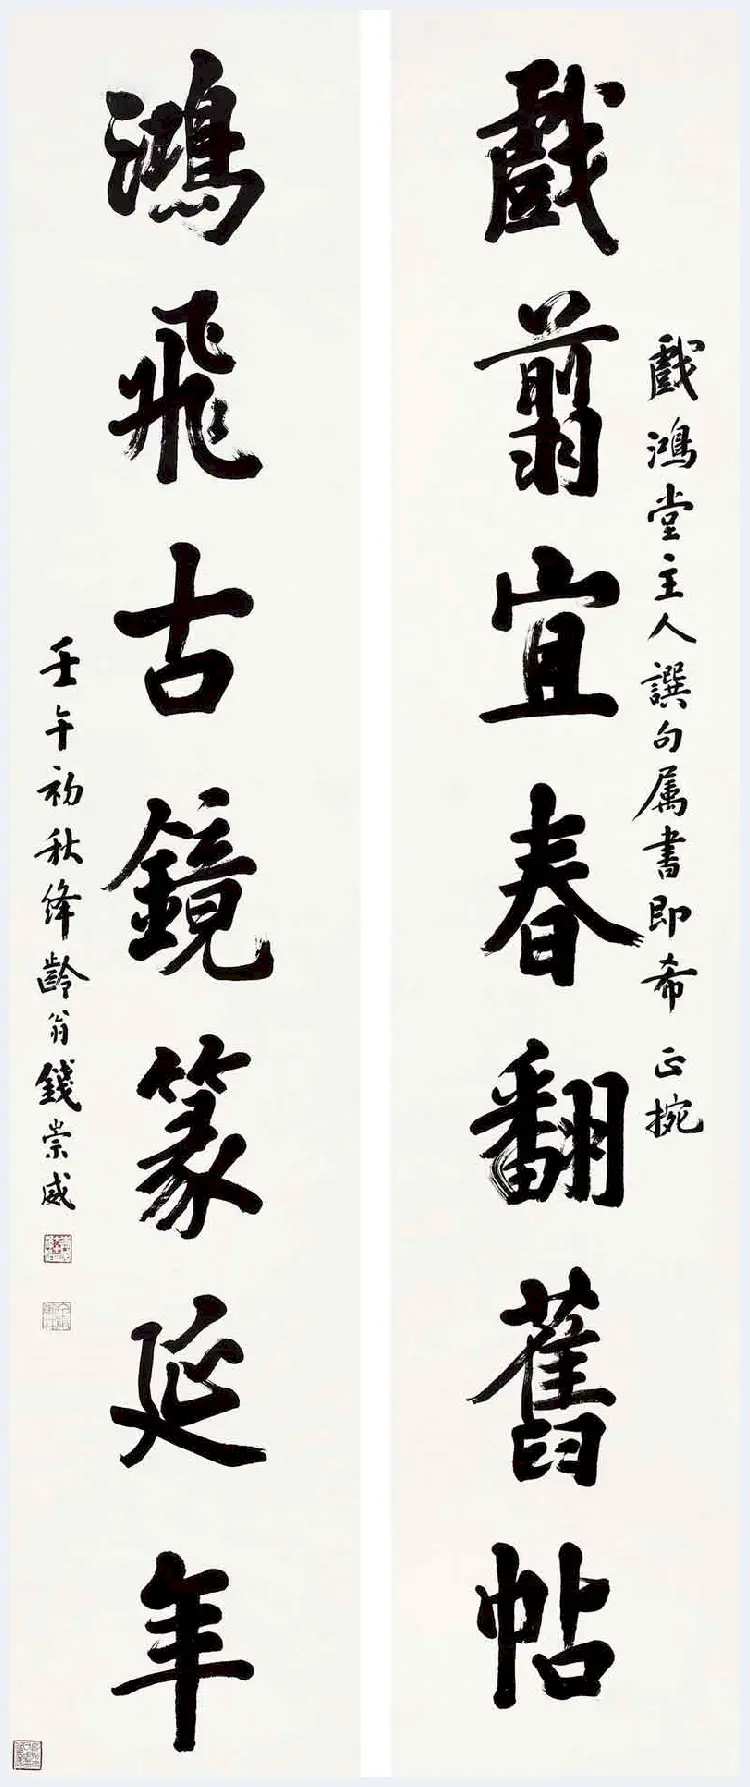 戲鴻堂主人譔句属書即希正捥
戲翦宜春翻舊帖
鴻飛古鏡篆延年
壬午初秋絳齡翁錢崇威